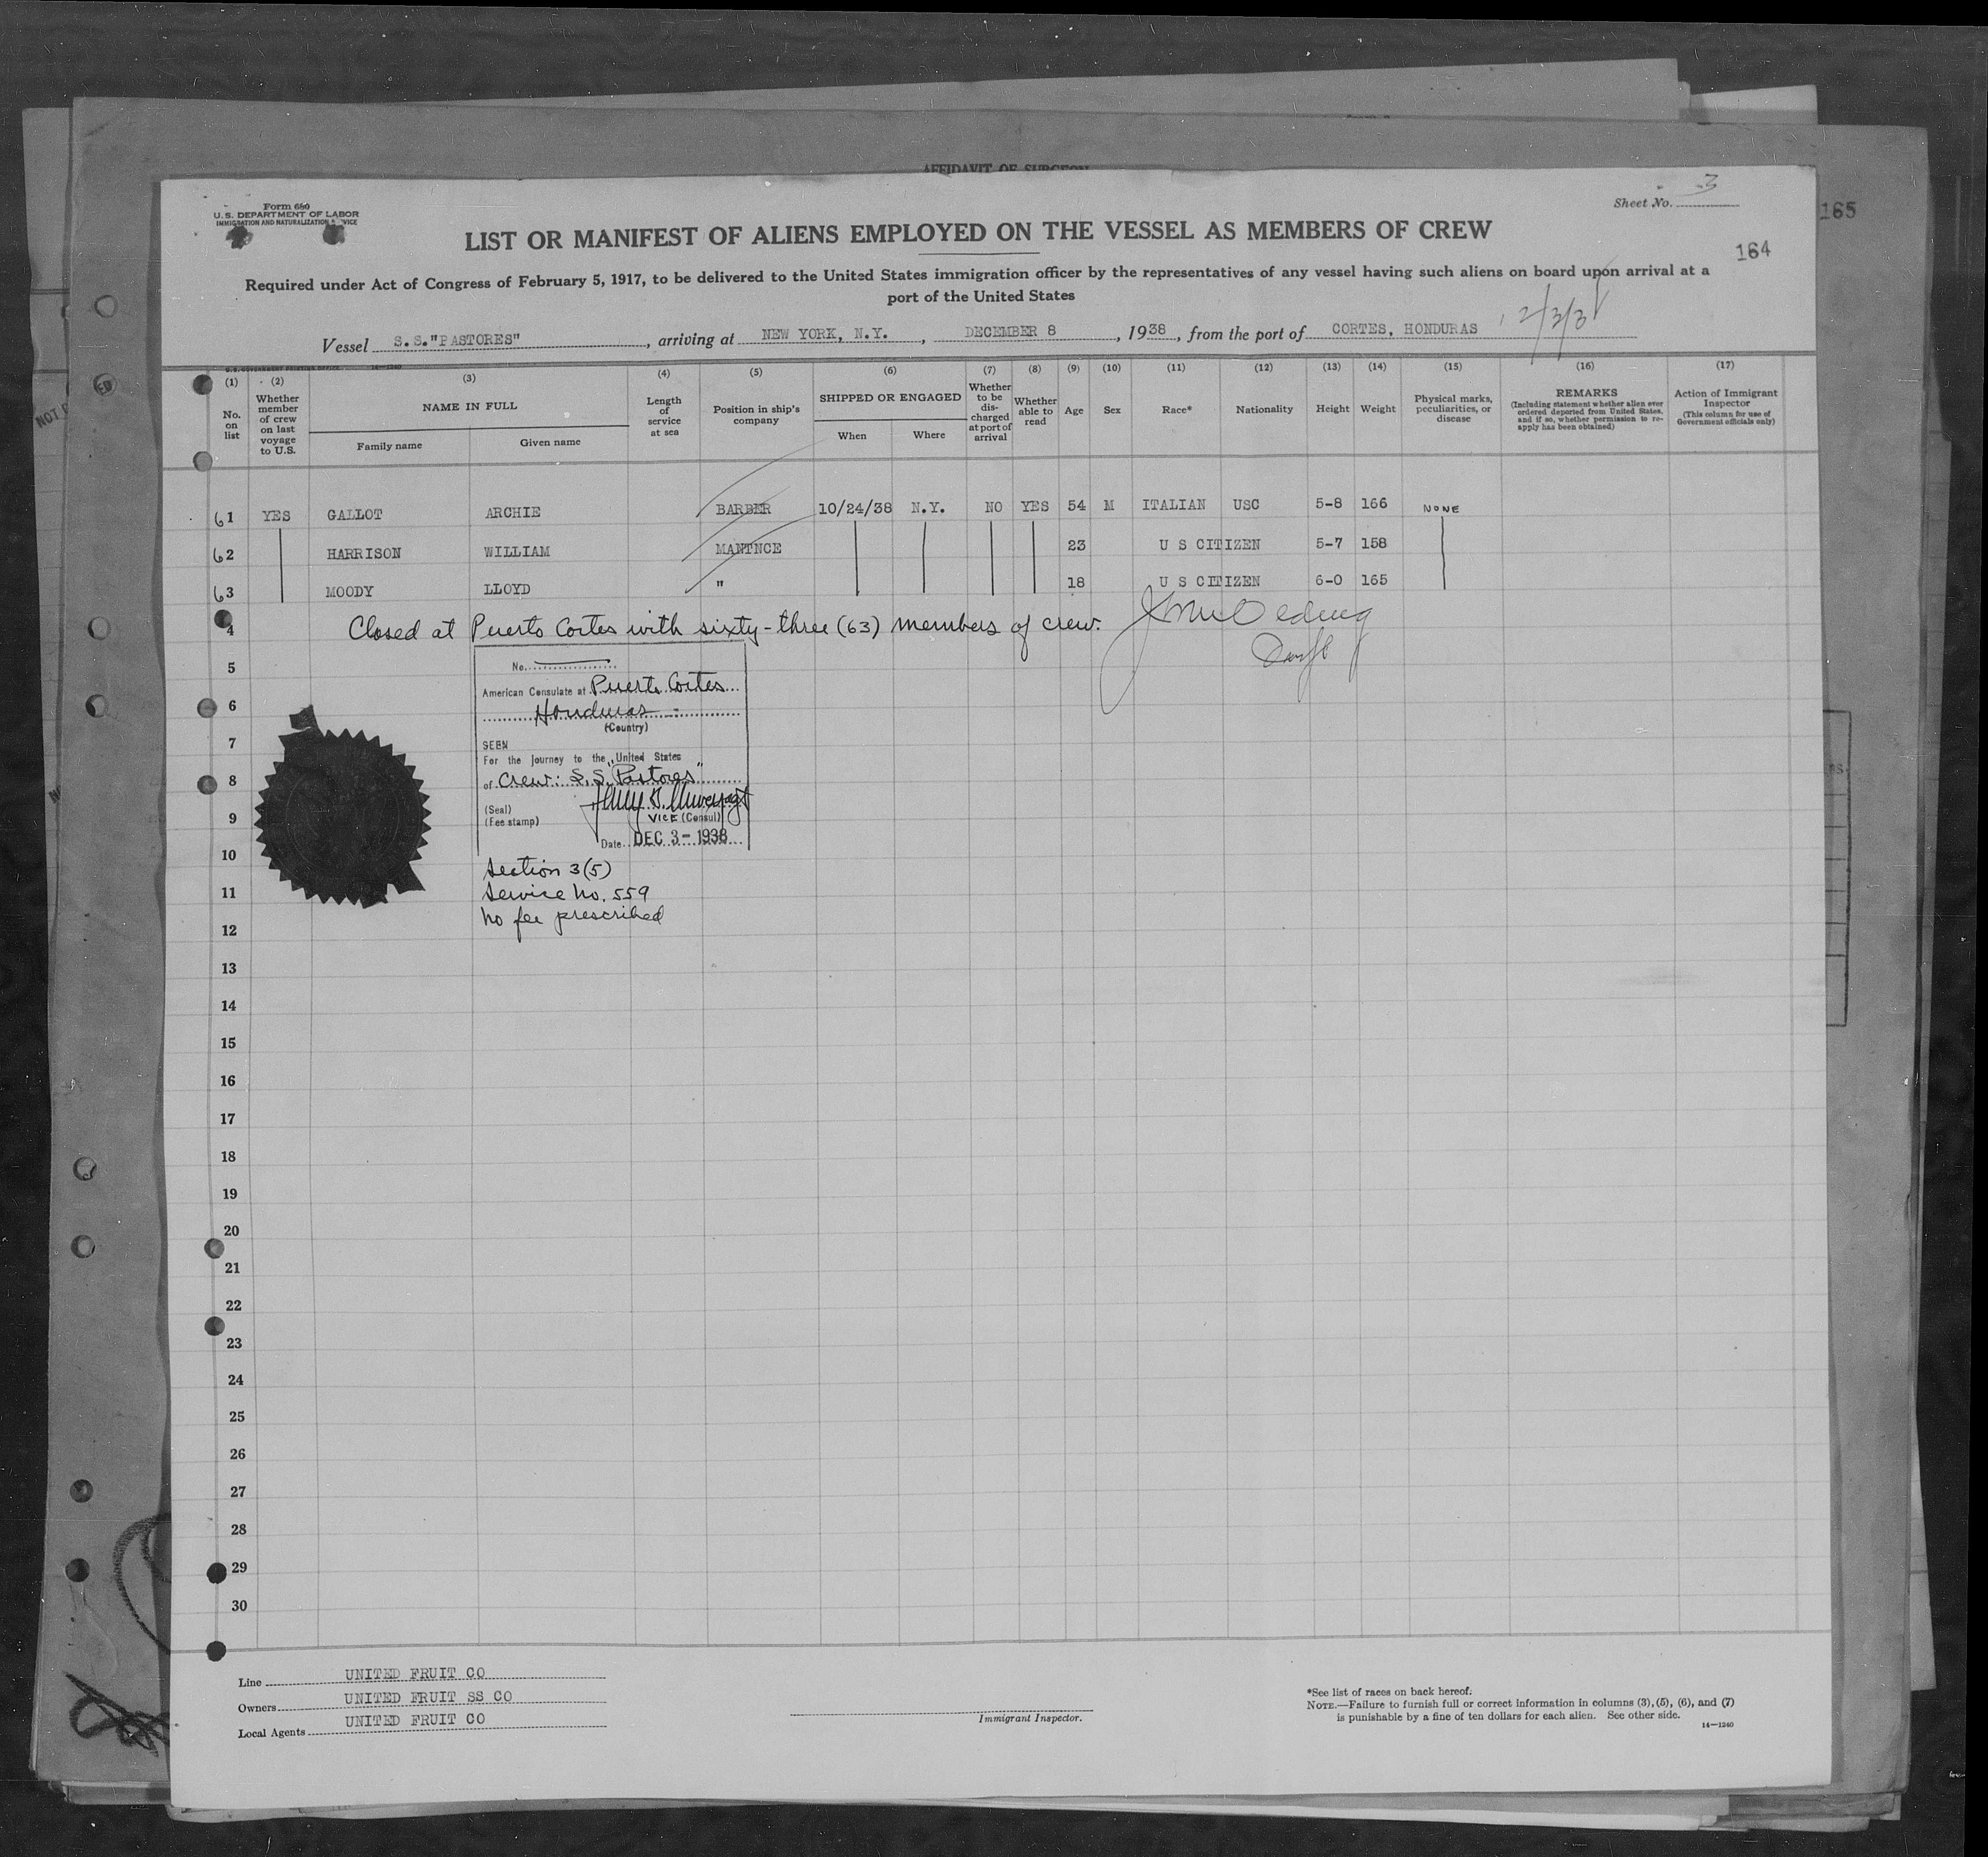 AFFIDAVIT OF SURGEON
Form 680
U.S. DEPARTMENT OF LABOR
IMMIGRATION AND NATURALIZATION SERVICE
Sheet No. 3
165
164
LIST OR MANIFEST OF ALIENS EMPLOYED ON THE VESSEL AS MEMBERS OF CREW
Required under Act of Congress of February 5, 1917, to be delivered to the United States immigration officer by the representatives of any vessel having such aliens on board upon arrival at a
port of the United States
12/3/38
Vessel S.S."PASTORES", arriving at NEW YORK, N.Y., DECEMBER 8, 1938, from the port of CORTES, HONDURAS
(1) (2) (3) (4) (5) (6) (7) (8) (9) (10) (11) (12) (13) (14) (15) (16) (17)
No. on list
Whether member of crew on last voyage to U.S.
NAME IN FULL
Family name
Given name
Length of service at sea
Position in ship's company
SHIPPED OR ENGAGED
When
Where
Whether to be discharged at port of arrival
Whether able to read
Age
Sex
Race*
Nationality
Height
Weight
Physical marks, peculiarities, or disease
REMARKS
(Including statement whether alien ever ordered deported from United States, and if so, whether permission to reapply has been obtained)
Action of Immigrant Inspector
(This column for use of Government officials only)
61 YES GALLOT ARCHIE BARBER 10/24/38 N.Y. NO YES 54 M ITALIAN USC 5-8 166 NONE
62 HARRISON WILLIAM MANTNCE 23 U S CITIZEN 5-7 158
63 MOODY LLOYD " 18 U S CITIZEN 6-0 165
4 Closed at Puerto Cortes with sixty-three (63) members of crew.
5
No.
American Consulate at Puerto Cortes
6
Honduras
(Country)
7
SEEN
For the journey to the United States
8
of Crew: S.S. "Pastores"
(Seal)
9
VICE (Consul)
(Fee stamp)
Date DEC 3- 1938
10
Section 3(5)
11
Service No. 559
No fee prescribed
12
13
14
15
16
17
18
19
20
21
22
23
24
25
26
27
28
29
30
Line UNITED FRUIT CO
Owners UNITED FRUIT SS CO
Local Agents UNITED FRUIT CO
Immigrant Inspector.
*See list of races on back hereof.
NOTE.—Failure to furnish full or correct information in columns (3), (5), (6), and (7)
is punishable by a fine of ten dollars for each alien. See other side.
14—1240